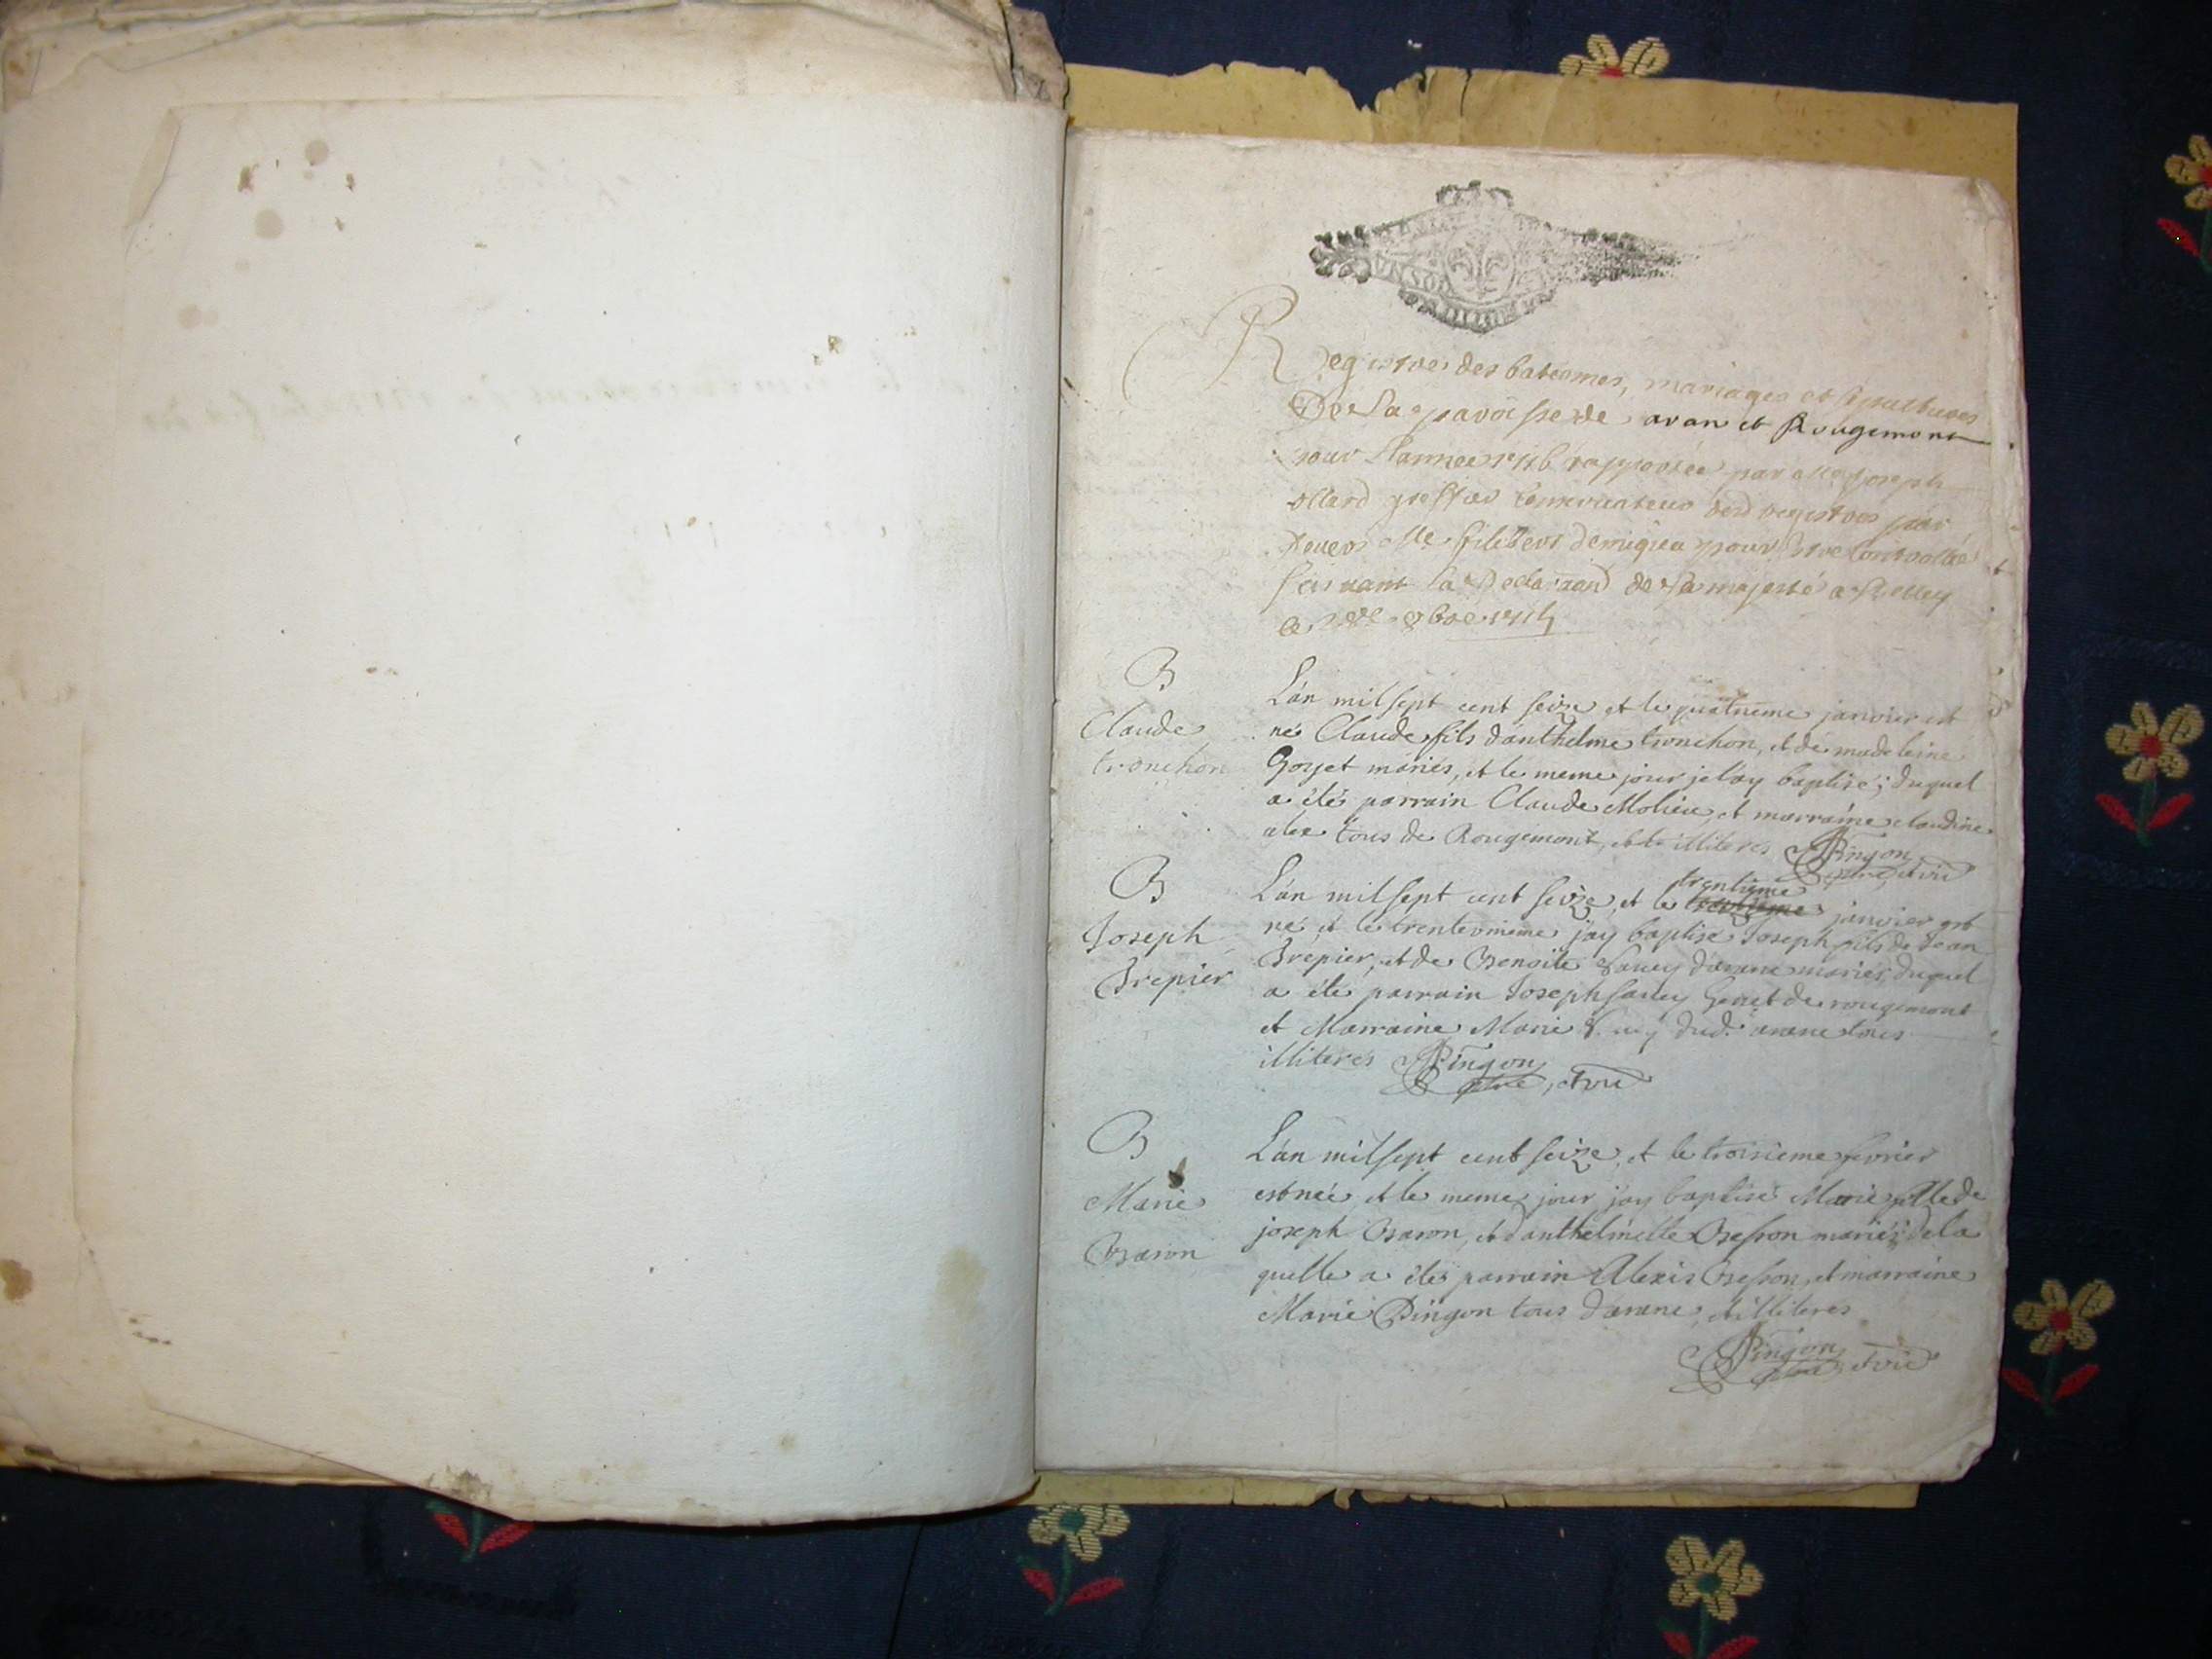 Registres des batesmes, mariages et sepultures
De La paroisse de aran et Rougemont
pour Lannee 1716 rapportée par Me Joseph
ollard greffier Conservateur desd registres par
Devers Me filibert demigieu pour Estre Controollé
suivant la Declaraon de Sa majesté a Belley
B
Claude
tronchon
L'an mil sept cent seize et le quatrieme janvier est
né Claude fils d'anthelme tronchon, et de madeleine
Goyet mariés, et le meme jour je l'ay baptisé; duquel
a été parrain Claude Molieu, et marraine claudine
tous de Rougemont, et illiteres Pingon
ptre, et vic
B
Joseph
Brepier
L'an mil sept cent seize, et le trentieme janvier est
né, et le trenteunieme jay baptisé Joseph fils de Jean
Brepier, et de Benoite Savey d'arane mariés, duquel
a été parrain Joseph Savey Genet de rougemont
et Marraine Marie dud. arane tous
illiteres Pingon
ptre, et vic
B
Marie
Baron
L'an mil sept cent seize, et le troisieme fevrier
est née et le meme jour jay baptisé Marie fille de
joseph Baron, et d'anthelmette Besson mariés; de la
quelle a été parrain Alexis Besson, et marraine
Marie Pingon tous d'arane, et illiteres
Pingon
ptre, et vic